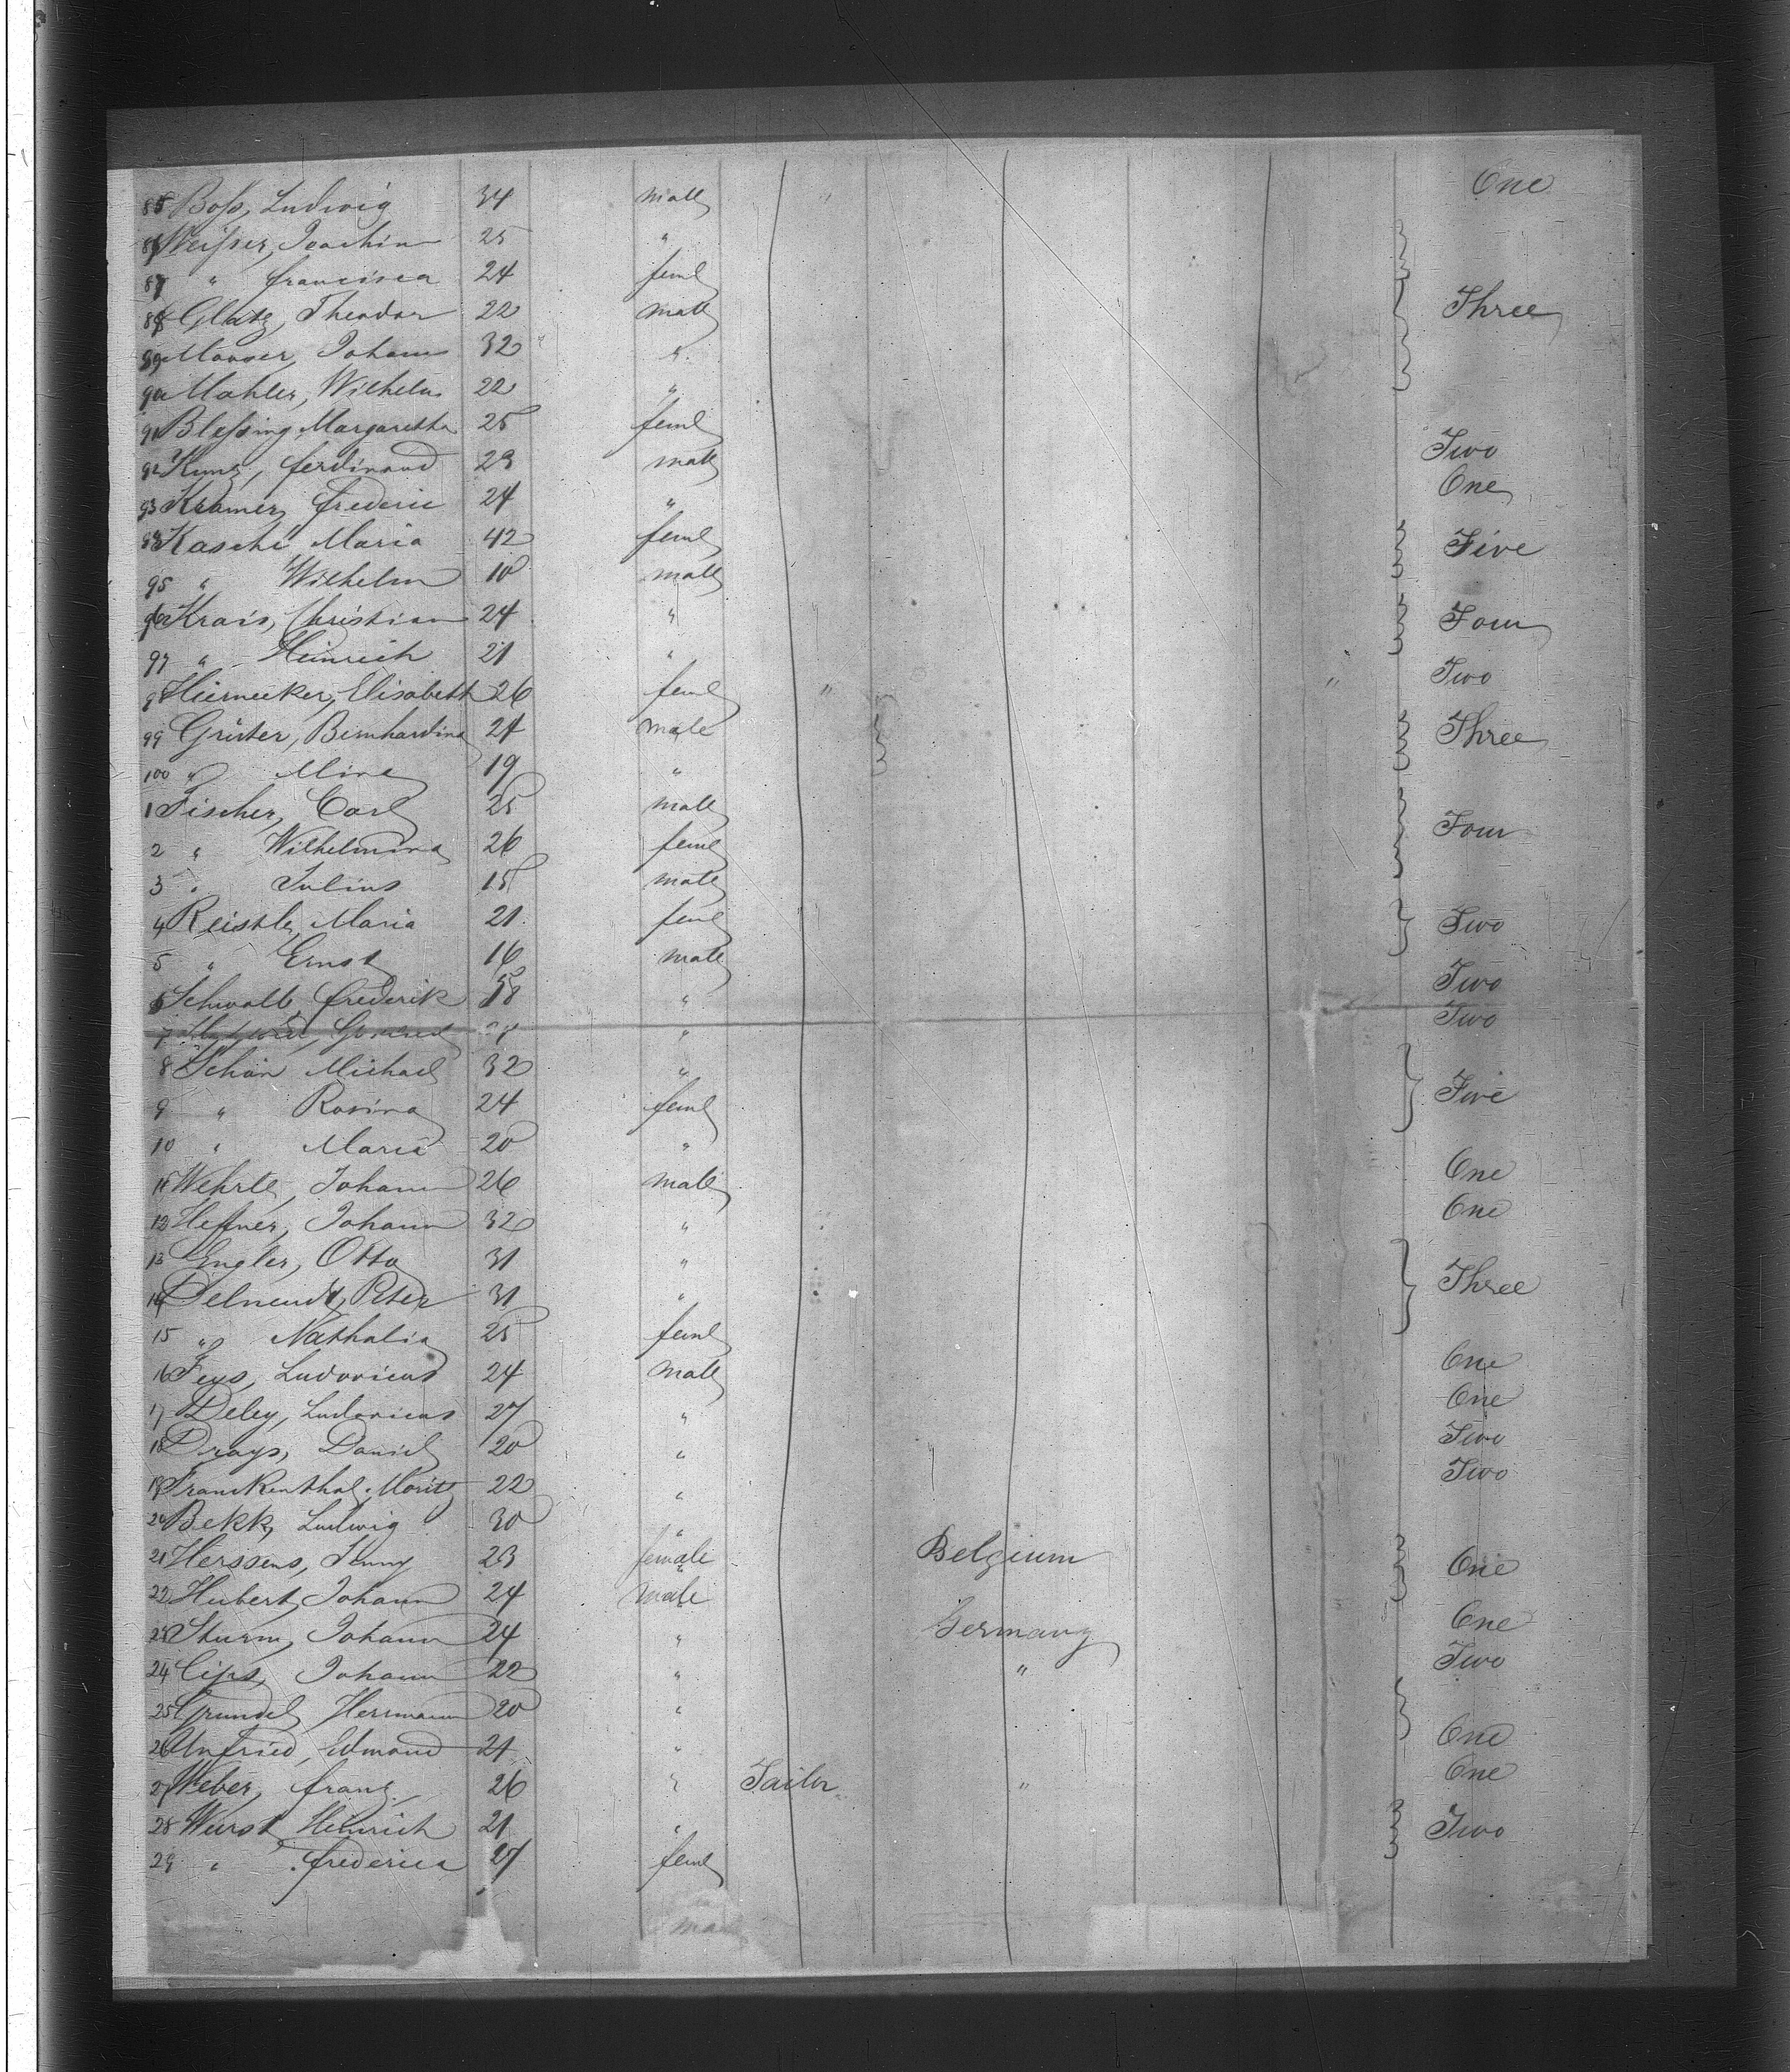 85 Boſs, Ludwig 34 male " One
86 Weiſser, Joachim 25 "
87 " francisca 24 feml
88 Glatz, Theodor 22 male Three
89 Mooser, Johann 32 " "
90 Mahler, Wilhelm 22 "
91 Bleſsing Margaretha 25 feml
92 Kunz, ferdinand 23 male Two
93 Kramer, frederic 24 " One
Kasche Maria 42 feml Five
95 " Wilhelm 10 male
96 Krais, Christian 24 " Four
97 " Heinrich 21 "
98 Hiernecker, Elisabeth 26 feml " " Two
99 Grüter, Bernhardina 24 male Three
100 " Mina 19 "
1 Fischer, Carl 25 male
2 " Wilhelmina 26 feml Four
3 " Julius 15 male
4 Reistle, Maria 21 feml Two
5 " Ernst 16 male
6 Schwalb, frederik 18 " Two
7 " Two
8 Schön Michael 32 "
9 " Rosina 24 feml Five
10 " Maria 20 "
11 Wehrle, Johann 26 male One
12 Heffner, Johann 32 " One
13 Engler, Otto 31 "
14 Peter 31 " Three
15 " Nathalia 25 feml
16 Feys, Ludovicus 24 male One
17 Deley, Ludovicus 27 " One
18 Prays, Daniel 20 " Two
19 Frankenthal, Moritz 22 " Two
20 Bekk, Ludwig 30 "
21 Herssens, Jenny 23 female Belgium One
22 Hubert, Johann 24 male
23 Sturm, Johann 24 " Germany One
24 Cips, Johann 22 " " Two
25 Grundel, Herrmann 20 "
26 Unfried, Edmond 21 " One
27 Weber, franz. 26 " Tailor " One
28 Wurst Heinrich 21 " Two
29 " frederica 27 feml
male